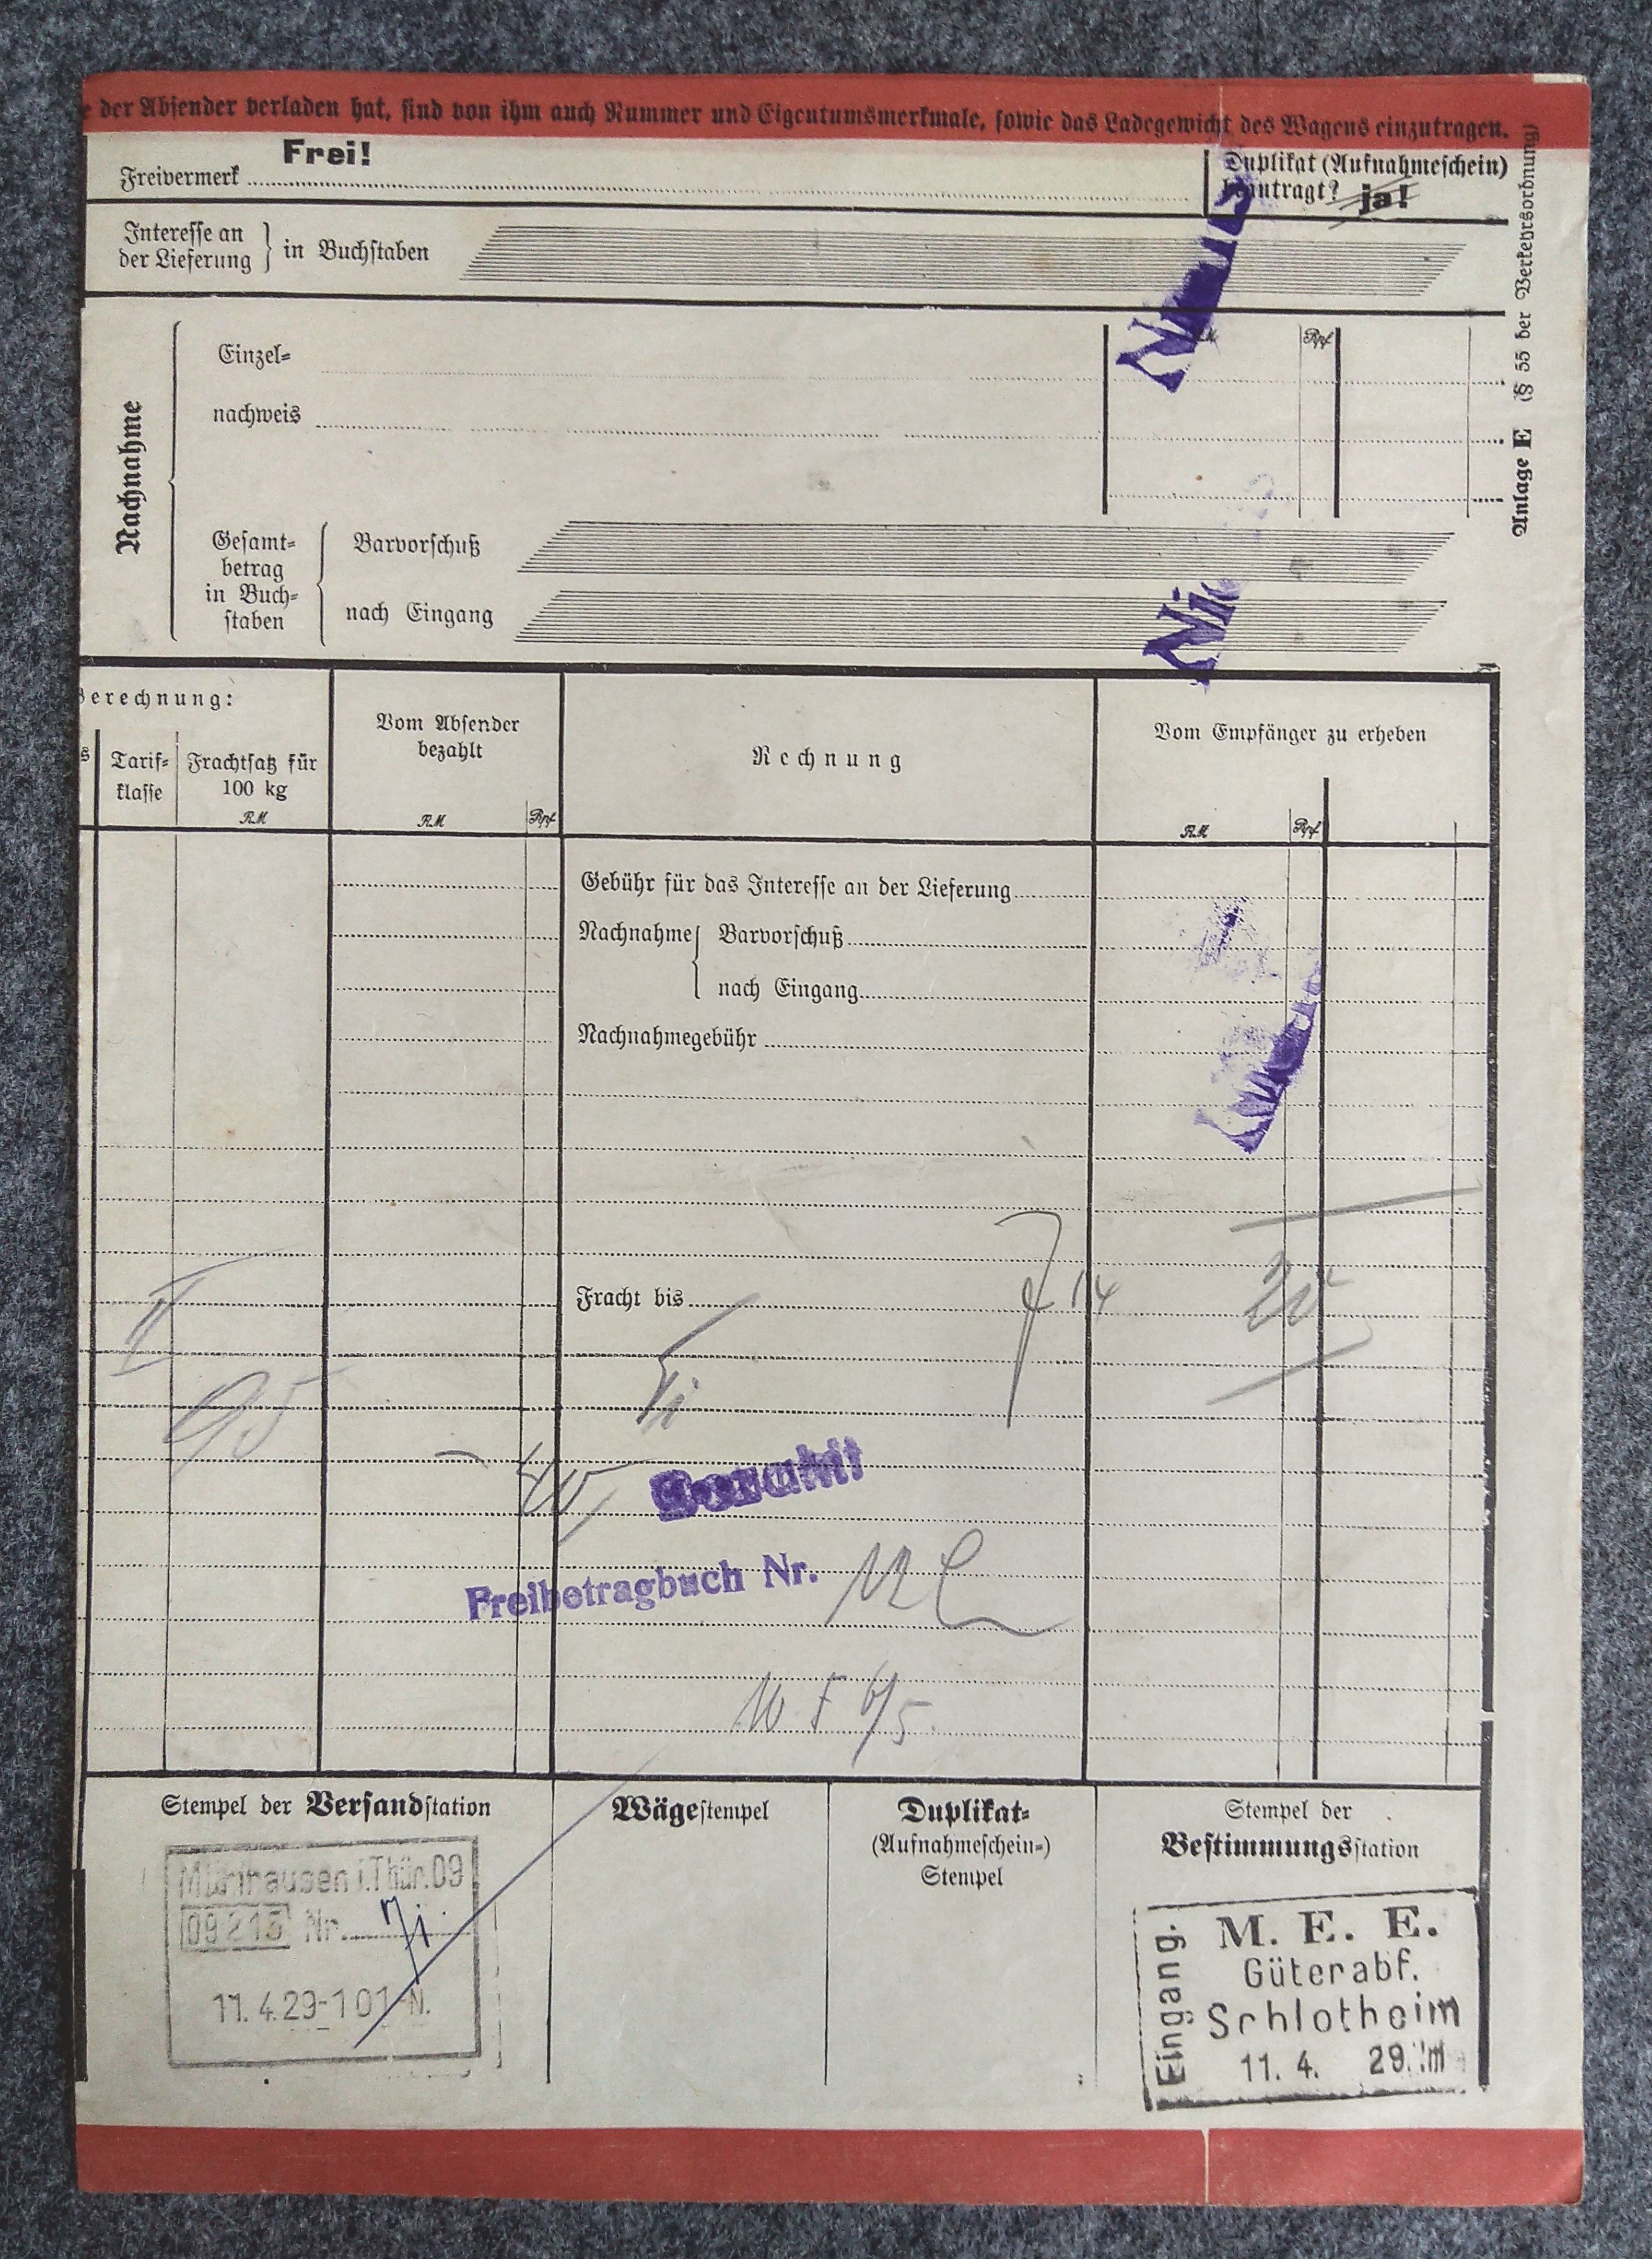 der Absender verladen hat, sind von ihm auch Nummer und Eigentumsmerkmale, sowie das Ladegewicht des Wagens einzutragen.
Frei!
Freivermerk
Duplikat (Aufnahmeschein)
beantragt? ja!
Interesse an
der Lieferung } in Buchstaben
Anlage E (§ 55 der Verkehrsordnung)
Nachnahme
Einzel=
nachweis
Rpf
Gesamt=
betrag
in Buch=
staben
Barvorschuß
nach Eingang
Berechnung:
Tarif=
klasse
Frachtsatz für
100 kg
RM
Vom Absender
bezahlt
RM Rpf
Rechnung
Vom Empfänger zu erheben
RM Rpf
Gebühr für das Interesse an der Lieferung
Nachnahme { Barvorschuß
nach Eingang
Nachnahmegebühr
Fracht bis
14
II
95
40
Bezahlt
Freibetragbuch Nr.
Stempel der Versandstation
Mühlhausen i.Thür.09
09213 Nr.
11.4.29-101-N.
Wägestempel
Duplikat=
(Aufnahmeschein=)
Stempel
Stempel der
Bestimmungsstation
Eingang.
M. E. E.
Güterabf.
Schlotheim
11. 4. 29.